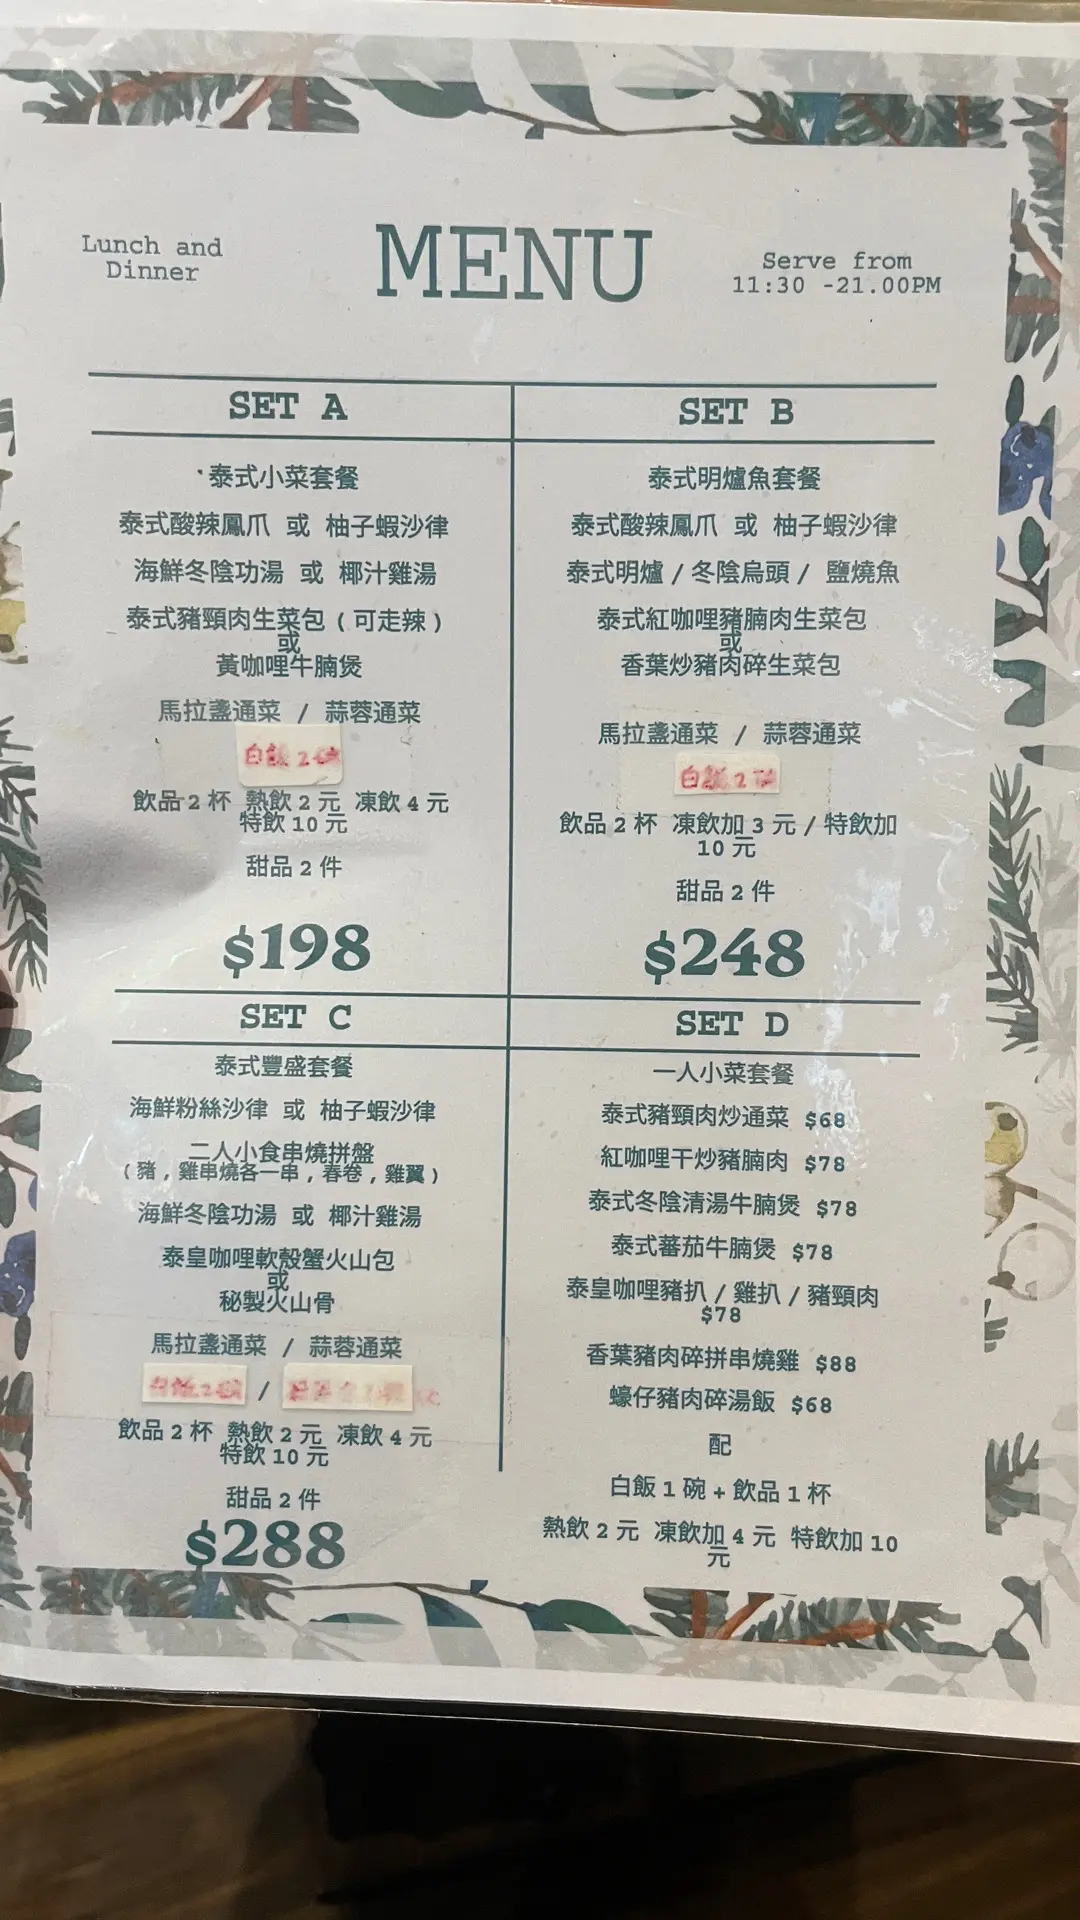 Lunch and
Dinner
MENU
Serve from
11:30 -21.00PM
SET A
泰式小菜套餐
泰式酸辣鳳爪 或 柚子蝦沙律
海鮮冬陰功湯 或 椰汁雞湯
泰式豬頸肉生菜包 ( 可走辣 )
或
黃咖哩牛腩煲
馬拉盞通菜 / 蒜蓉通菜
白飯 2
飲品 2 杯 熱飲 2 元 凍飲 4 元
特飲 10 元
甜品 2 件
$198
SET B
泰式明爐魚套餐
泰式酸辣鳳爪 或 柚子蝦沙律
泰式明爐 / 冬陰烏頭 / 鹽燒魚
泰式紅咖哩豬腩肉生菜包
或
香葉炒豬肉碎生菜包
馬拉盞通菜 / 蒜蓉通菜
白飯 2
飲品 2 杯 凍飲加 3 元 / 特飲加
10 元
甜品 2 件
$248
SET C
泰式豐盛套餐
海鮮粉絲沙律 或 柚子蝦沙律
二人小食串燒拼盤
( 豬 , 雞串燒各一串 , 春卷 , 雞翼 )
海鮮冬陰功湯 或 椰汁雞湯
泰皇咖哩軟殼蟹火山包
或
秘製火山骨
馬拉盞通菜 / 蒜蓉通菜
白飯2 /
飲品 2 杯 熱飲 2 元 凍飲 4 元
特飲 10 元
甜品 2 件
$288
SET D
一人小菜套餐
泰式豬頸肉炒通菜 $68
紅咖哩干炒豬腩肉 $78
泰式冬陰清湯牛腩煲 $78
泰式蕃茄牛腩煲 $78
泰皇咖哩豬扒 / 雞扒 / 豬頸肉
$78
香葉豬肉碎拼串燒雞 $88
蠔仔豬肉碎湯飯 $68
配
白飯 1 碗 + 飲品 1 杯
熱飲 2 元 凍飲加 4 元 特飲加 10
元